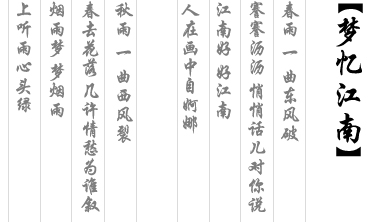 【梦忆江南】
春雨一曲东风破
窸窸沥沥 悄悄话儿对你说
江南好 好江南
人在画中自婀娜
秋雨一曲西风裂
春去花落 几许情愁为谁叙
烟雨梦 梦烟雨
上听雨心头绿